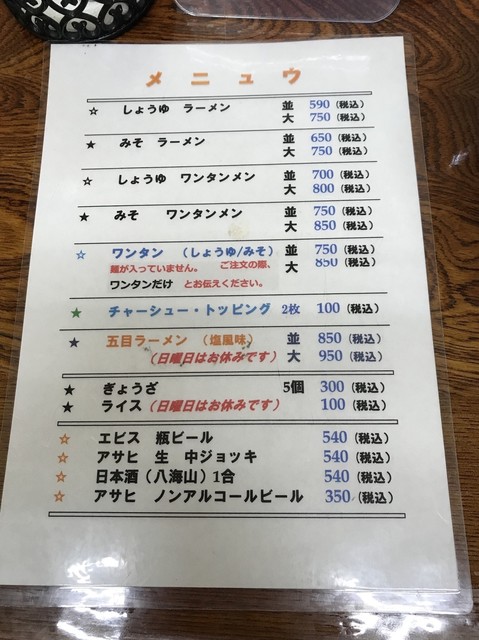 メニュウ
☆ しょうゆ ラーメン 並 590 (税込)
大 750 (税込)
★ みそ ラーメン 並 650 (税込)
大 750 (税込)
☆ しょうゆ ワンタンメン 並 700 (税込)
大 800 (税込)
★ みそ ワンタンメン 並 750 (税込)
大 850 (税込)
☆ ワンタン (しょうゆ/みそ) 並 750 (税込)
麺が入っていません。 ご注文の際、 大 850 (税込)
ワンタンだけ とお伝えください。
★ チャーシュー・トッピング 2枚 100 (税込)
★ 五目ラーメン (塩風味) 並 850 (税込)
(日曜日はお休みです) 大 950 (税込)
★ ぎょうざ 5個 300 (税込)
★ ライス (日曜日はお休みです) 100 (税込)
☆ エビス 瓶ビール 540 (税込)
☆ アサヒ 生 中ジョッキ 540 (税込)
☆ 日本酒 (八海山) 1合 540 (税込)
☆ アサヒ ノンアルコールビール 350 (税込)